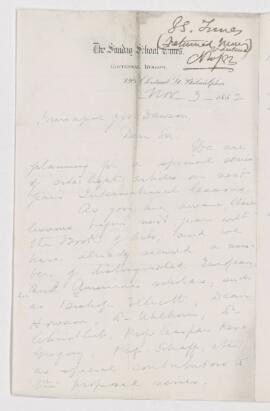 S.S. Times
(Returned Numry
Nov/82
The Sunday School Times.
EDITORIAL ROOMS,
Chestnut St. Philadelphia
Nov. 3 1882
Principal J. W. Dawson,
Dear Sir,
We are
planning for a special series
of side-light articles on next
year's International lessons.
As you are aware these
lessons begin next year with
the Book of Acts, and we
have already secured a num-
ber of distinguished European
and American scholars, such
as Bishop Ellicott, Dean
Howson, Dr.
Prof. Caspar René
Gregory, Prof. Schaff, etc.
as special contributors to
the proposed series.